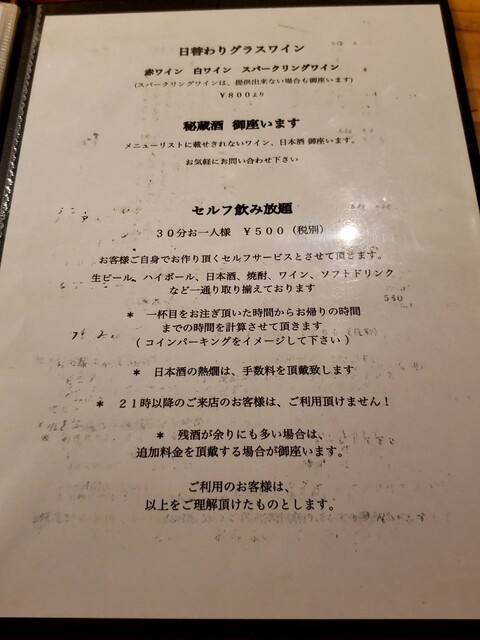 日替わりグラスワイン
赤ワイン 白ワイン スパークリングワイン
(スパークリングワインは、提供出来ない場合も御座います)
￥８００より
秘蔵酒 御座います
メニューリストに載せきれないワイン、日本酒 御座います。
お気軽にお問い合わせ下さい
セルフ飲み放題
３０分お一人様 ￥５００（税別）
お客様ご自身でお作り頂くセルフサービスとさせて頂きます。
生ビール、ハイボール、日本酒、焼酎、ワイン、ソフトドリンク
など一通り取り揃えております
＊ 一杯目をお注ぎ頂いた時間からお帰りの時間
までの時間を計算させて頂きます
( コインパーキングをイメージして下さい )
＊ 日本酒の熱燗は、手数料を頂戴致します
＊ ２１時以降のご来店のお客様は、ご利用頂けません！
＊ 残酒が余りにも多い場合は、
追加料金を頂戴する場合が御座います。
ご利用のお客様は、
以上をご理解頂けたものとします。